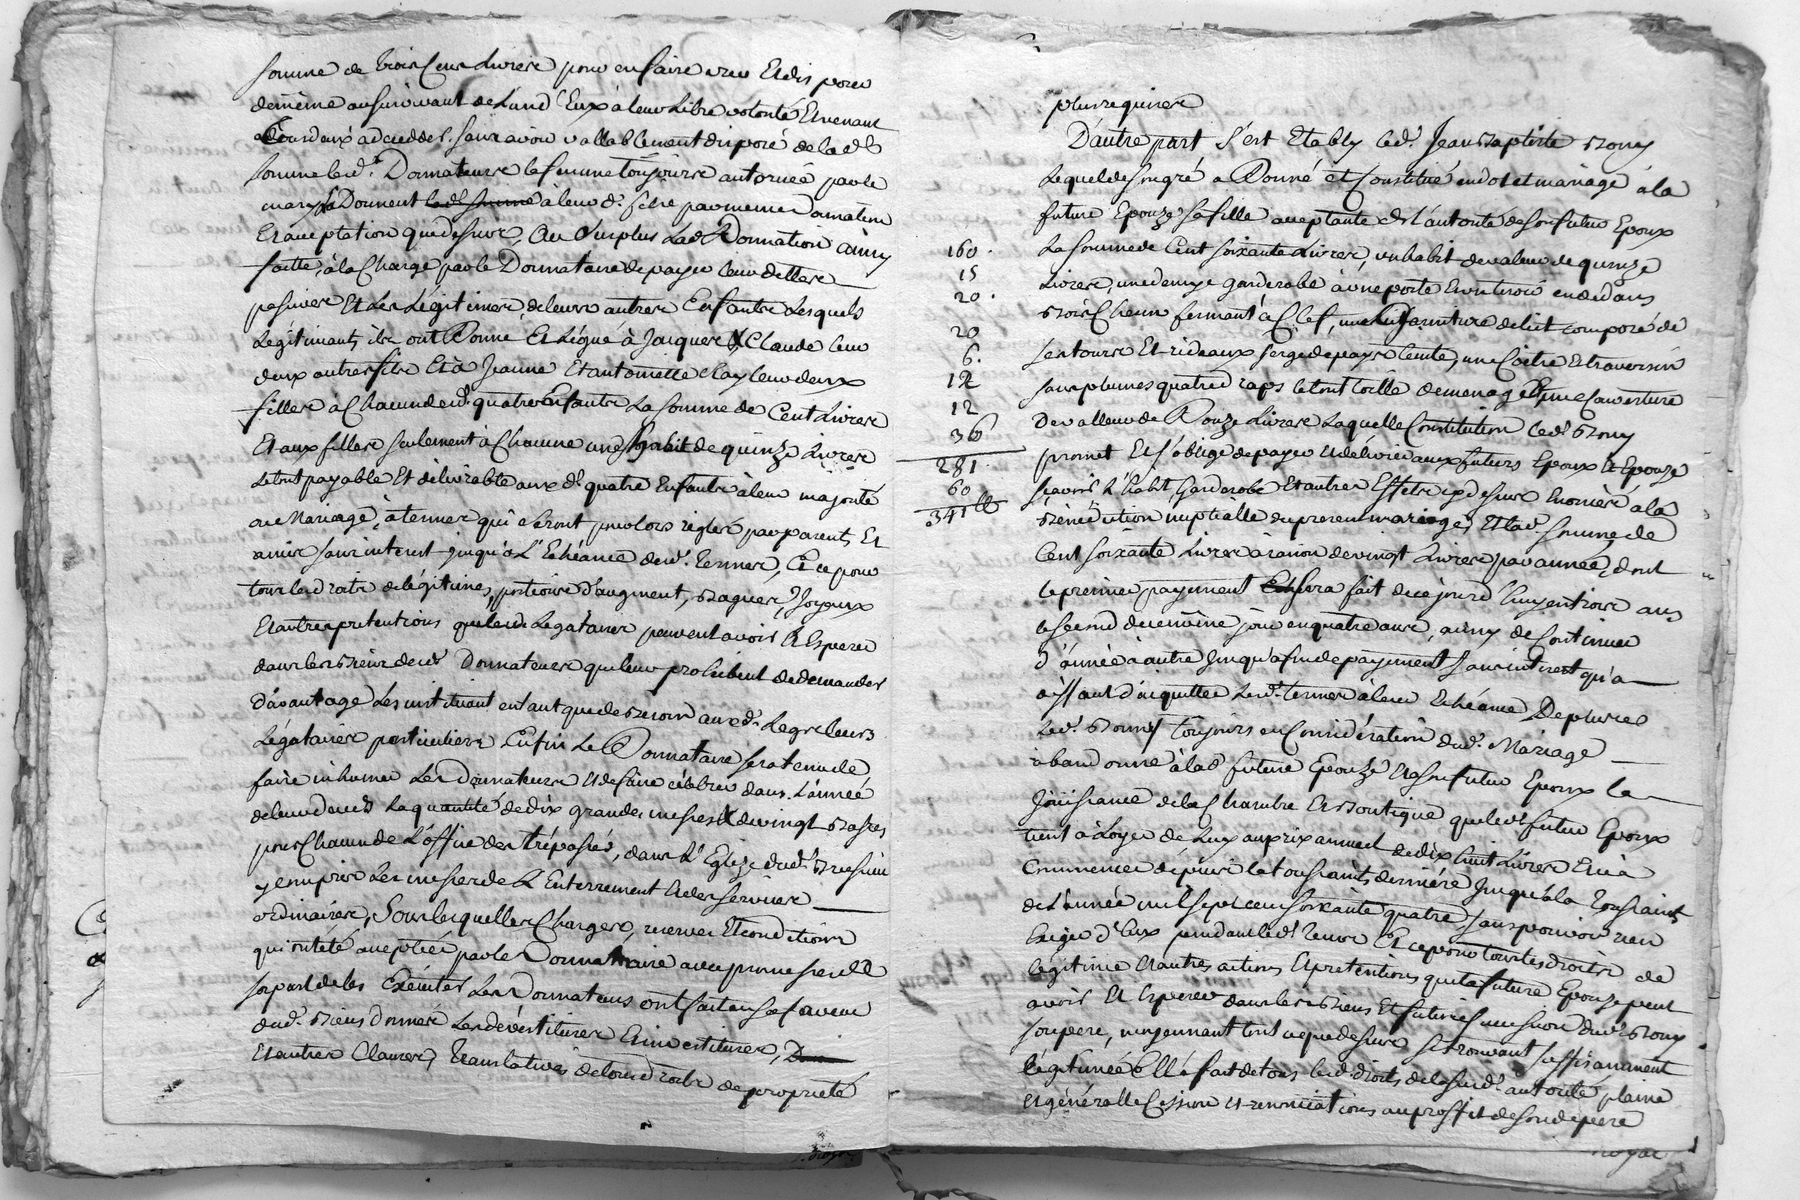 somme de trois Cens Livres pour en faire user Et dis poser
de même au survivant de L'un d'Eux à leur Libre volonté Et venant
deux à decedder sans avoir vallablement disposé de lad.
somme led. Donnateurs la femme toujours autorisée par le
mary Donnent à leur d. fils par même donnation
Et acceptation que dessus, Au Surplus Lad. Donnation ainsy
faitte, à la Charge par le Donnataire de payer leurs dettes
passives Et Les Légitimes de leurs autres Enfants Lesquels
Légitimant, ils ont Donné Et Légué à Jacques & Claude leur
deux autres fils Et à Jeanne Et antoinette leur deux
filles à Chacun desd. quatre Enfants La somme de Cent Livres
Et aux filles seulement à Chacune un habit de quinze Livres
Le tout payable Et délivrable aux d. quatre Enfants à leur majorité
ou Mariage, à termes qui seront pour lors réglés par parents Et
amis sans interest jusqu'à L'Echéance desd. Termes, Et ce pour
tous les droits de légitimes, portions d'augment, Bagues, Joyaux
Et autres pretentions que lesd. Légataires peuvent avoir & Esperer
dans les Biens desd. Donnateurs qui leur prohibent de demander
D'avantage Les instituant en tant que de Besoin auxd. Legs leurs
Légataires particuliers Enfin Le Donnataire sera tenu de
faire inhumer Les donnateurs Et de faire célébrer dans L'année
de leur deceds La quantité de dix grandes messes & de vingt Basses
pour Chacun de L'office des trépassés, dans L'Eglize dud.
y compris Les messes de L'Enterrement Et des services
ordinaires, Sous lesquelles Charges, reserves Et conditions
qui ont été acceptées par le Donnataire avec promesse de
sa part de les Exécuter Les Donnateurs ont fait en sa faveur
dud. Biens donnés Les dévestitures Et investitures,
Et autres Clauses Translatives de tous droits de propriété
plus requises
D'autre part S'est Etably led. Jean Baptiste Bony
Lequel de son gré a Donné et Constitué en dot et mariage à la
future Epouze sa fille acceptante de l'autorité de son futur Epoux
160. La somme de Cent soixante Livres, un habit de valeur de quinze
15 Livres, une demye garderobe à une porte Et un tiroir en dedans
20. Bois Chesne fermant à Clef, une garniture de lit composé de
20 ses tours Et rideaux serge de pays teinte, une Coitre Et traversin
6. sans plumes quatre draps le tout toille de menage Et une Couverture
12 De valleur de Douze Livres Laquelle Constitution led. Bony
12
36 promet Et s'oblige de payer Et délivrer aux futurs Epoux Et Epouze
281. sçavoir L'habit, Garderobe Et autres Effets dessus Enoncés à la
60
341 Bénédiction nuptialle du present mariage, Et lad. somme de
Cent soixante Livres à raison de vingt Livres par année, dont
le premier payement sera fait de ce jourd'huy en trois ans
le second de ce même jour en quatre ans, ainsy de Continuer
d'année à autre jusqu'à fin de payement sans interest qu'à
deffaut d'acquitter Lesd. termes à leur Echéance, De plus
Led. Bony Toujours en Considération dud. Mariage
abandonne à lad. future Epouze Et à son futur Epoux la
Jouissance de la Chambre Et Boutique que led. futur Epoux
tient à Loyer de Luy au prix annuel de dix huit Livres Et ce à
Commencer depuis la toussaints derniére jusqu'à la Toussaint
de L'année mil sept cens soixante quatre sans pouvoir rien
Exiger d'Eux pendant led. tems Et ce pour tous les droits de
légitime Et autres actions Et pretentions que la future Epouze peut
avoir Et Esperer dans les Biens Et future succession dud. Bony
son pere, moyennant tout ce que dessus se trouvant suffisamment
légitimée Elle fait de tous lesd. droits de lad. autorité plaine
Et généralle Cession Et renonciations au proffit de sond. pere